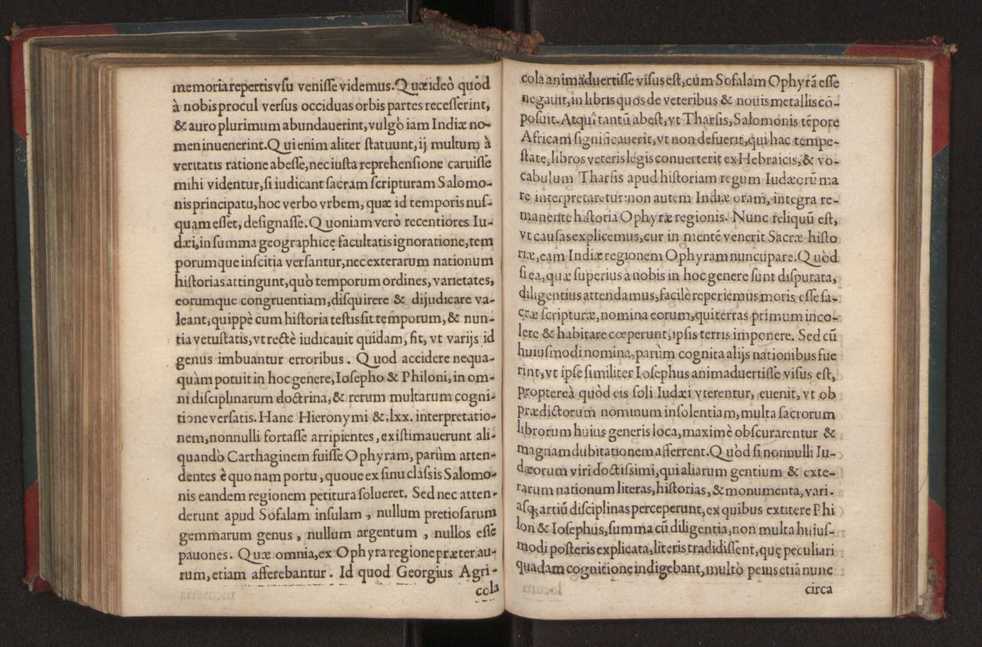 memoria repertis vsu venisse videmus. Quæ ideò quòd
à nobis procul versus occiduas orbis partes recesserint,
& auro plurimum abundauerint, vulgò iam Indiæ no-
men inuenerint. Qui enim aliter statuunt, ij multum à
veritatis ratione abesse, nec iusta reprehensione caruisse
mihi videntur, si iudicant sacram scripturam Salomo-
nis principatu, hoc verbo vrbem, quæ id temporis nus-
quam esset, designasse. Quoniam verò recentiores Iu-
dæi, in summa geographicę facultatis ignoratione, tem
porumque inscitia versantur, nec exterarum nationum
historias attingunt, quò temporum ordines, varietates,
eorumque congruentiam, disquirere & dijudicare va-
leant, quippè cum historia testis sit temporum, & nun-
tia vetustatis, vt rectè iudicauit quidam, fit, vt varijs id
genus imbuantur erroribus. Quod accidere nequa-
quàm potuit in hoc genere, Iosepho & Philoni, in om-
ni disciplinarum doctrina, & rerum multarum cogni-
tione versatis. Hanc Hieronymi & .lxx. interpretatio-
nem, nonnulli fortasse arripientes, existimauerunt ali-
quandò Carthaginem fuisse Ophyram, parùm atten-
dentes è quo nam portu, quoue ex sinu classis Salomo-
nis eandem regionem petitura solueret. Sed nec atten-
derunt apud Sofalam insulam, nullum pretiosarum
gemmarum genus, nullum argentum, nullos esse
pauones. Quæ omnia, ex Ophyra regione præter au-
rum, etiam afferebantur. Id quod Georgius Agri-
cola
cola animaduertisse visus est, cùm Sofalam Ophyrã esse
negauit, in libris quos de veteribus & nouis metallis cõ-
posuit. Atqui tantũ abest, vt Tharsis, Salomonis tẽpore
Africam significauerit, vt non defuerit, qui hac tempe-
state, libros veteris legis conuerterit ex Hebraicis, & vo-
cabulum Tharsis apud historiam regum Iudæorũ ma
re interpretaretur: non autem Indiæ oram, integra re-
manente historia Ophyræ regionis. Nunc reliquũ est,
vt causas explicemus, cur in mentẽ venerit Sacræ histo
riæ, eam Indiæ regionem Ophyram nuncupare. Quòd
si ea, quæ superius à nobis in hoc genere sunt disputata,
diligentius attendamus, facilè reperiemus moris esse sa-
cræ scripturæ, nomina eorum, qui terras primum inco-
lere & habitare cœperunt, ipsis terris imponere. Sed cũ
huiusmodi nomina, parùm cognita alijs nationibus fue
rint, vt ipse similiter Iosephus animaduertisse visus est,
proptereà quòd eis soli Iudæi vterentur, euenit, vt ob
prædictorum nominum insolentiam, multa sacrorum
librorum huius generis loca, maximè obscurarentur &
magnam dubitationem afferrent. Quòd si nonnulli Iu-
dæorum viri doctissimi, qui aliarum gentium & exte-
rarum nationum literas, historias, & monumenta, vari-
asq; artiũ disciplinas perceperunt, ex quibus extitere Phi
lon & Iosephus, summa cũ diligentia, non multa huius-
modi posteris explicata, literis tradidissent, quę peculiari
quadam cognitione indigebant, multò peius etiã nunc
circa